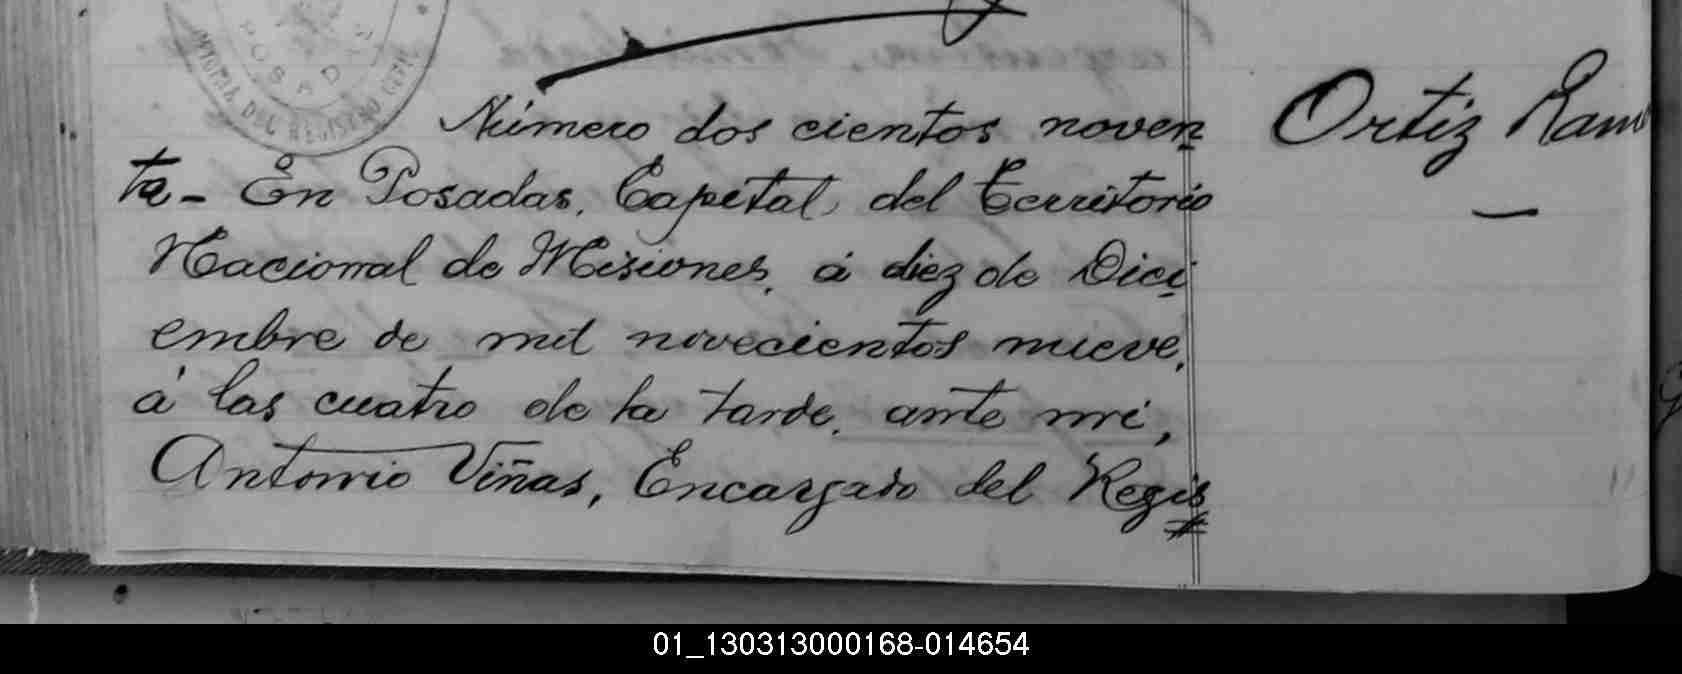 POSAD
OFICINA DEL REGISTRO CIVIL
Número dos cientos noven
ta - En Posadas, Capital, del Territorio
Nacional de Misiones, á diez de Dici
embre de mil novecientos nueve,
á las cuatro de la tarde, ante mi,
Antonio Viñas, Encargado del Regis
Ortiz Ram
01_130313000168-014654